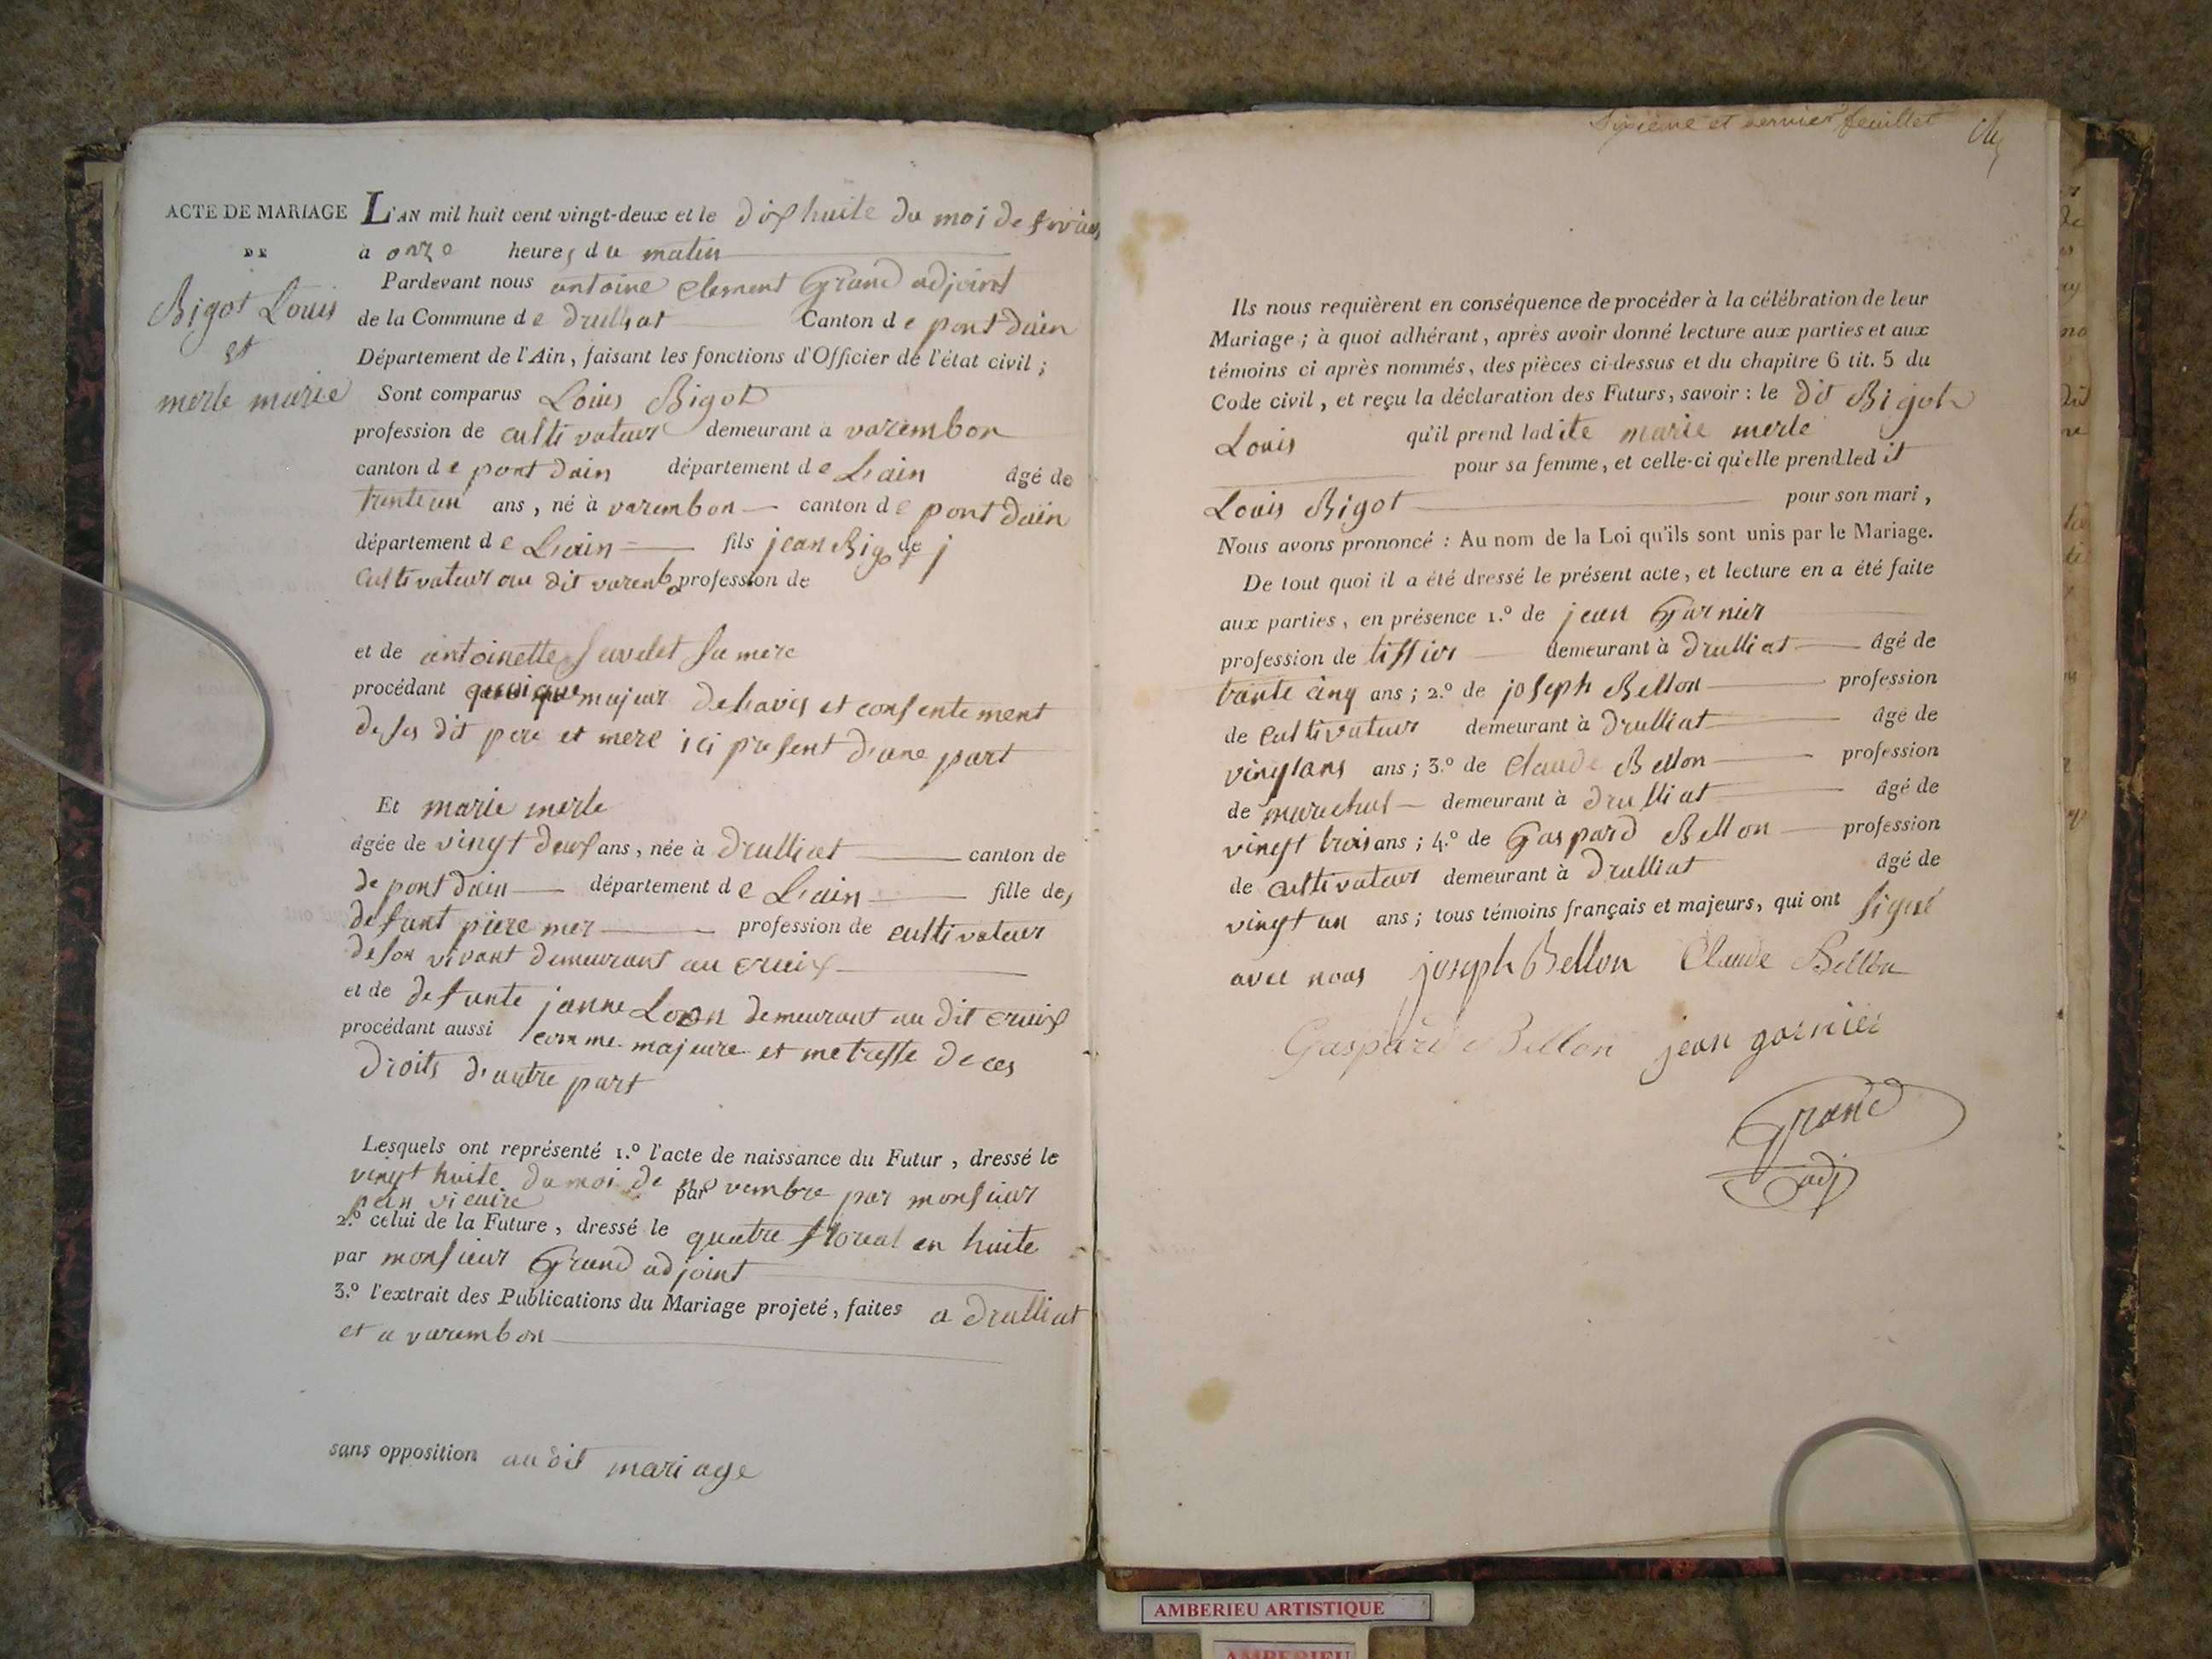 ACTE DE MARIAGE
DE
Bigot Louis
et
merle marie
L'AN mil huit cent vingt-deux et le dix huite du moi de
à onze heures du matin
Pardevant nous antoine clement Grand adjoint
de la Commune de drulliat Canton de pont dain
Département de l'Ain, faisant les fonctions d'Officier de l'état civil ;
Sont comparus Louis Bigot
profession de cultivateur demeurant a varembon
canton de pont dain département de Lain âgé de
trente un ans, né à varembon canton de pont dain
département de Lain fils jean Bigot de
cultivateur au dit varemb profession de
et de antoinette sa mere
procédant quoique majeur de lavis et consentement
de ses dit pere et mere ici present d'une part
Et marie merle
âgée de vingt deux ans, née à drulliat canton de
de pont dain département de Lain fille de
defunt piere mer profession de cultivateur
de son vivant demeurant au cruix
et de defunte janne demeurant au dit cruix
procédant aussi comme majeure et metresse de ces
droits d'autre part
Lesquels ont représenté 1.º l'acte de naissance du Futur, dressé le
vingt huite du moi de novembre par monsieur
par
vicaire
2.º celui de la Future, dressé le quatre floreal en huite
par monsieur Grand adjoint
3.º l'extrait des Publications du Mariage projeté, faites a drulliat
et a varembon
sans opposition au dit mariage
Sixième et dernier feuillet
Ils nous requièrent en conséquence de procéder à la célébration de leur
Mariage ; à quoi adhérant, après avoir donné lecture aux parties et aux
témoins ci après nommés, des pièces ci-dessus et du chapitre 6 tit. 5 du
Code civil, et reçu la déclaration des Futurs, savoir : le dit Bigot
Louis qu'il prend ladite marie merle
pour sa femme, et celle-ci qu'elle prend ledit
Louis Bigot pour son mari,
Nous avons prononcé : Au nom de la Loi qu'ils sont unis par le Mariage.
De tout quoi il a été dressé le présent acte, et lecture en a été faite
aux parties, en présence 1.º de jean Garnier
profession de tissier demeurant à drulliat âgé de
trante cinq ans ; 2.º de joseph Bellon profession
de cultivateur demeurant à drulliat âgé de
vingt ans ans ; 3.º de Claude Bellon profession
de marechal demeurant à drulliat âgé de
vingt trois ans ; 4.º de Gaspard Bellon profession
de cultivateur demeurant à drulliat âgé de
vingt un ans ; tous témoins français et majeurs, qui ont signé
avec nous joseph Bellon Claude Bellon
Gaspard Bellon jean garnier
Grand
adj
AMBERIEU ARTISTIQUE
AMBERIEU